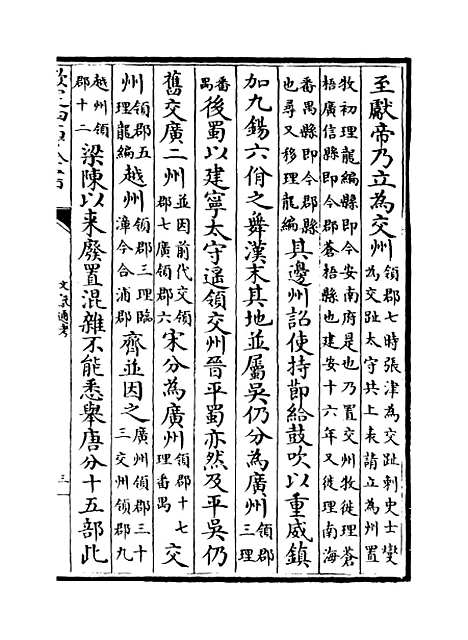 至獻帝乃立為交州領郡七時張津為交趾刺史士燮為交趾太守共上表請立為州置
牧初理龍編縣即今安南府是也乃置交州牧徙理蒼梧廣信縣即今郡蒼梧縣也建安十六年又徙理南海
番禺縣即今郡縣也尋又移理龍編其邊州詔使持節給鼓吹以重威鎮
加九錫六佾之舞漢末其地並屬吳仍分為廣州領郡三理
番禺後蜀以建寧太守遙領交州晉平蜀亦然及平吳仍
舊交廣二州並因前代交領郡七廣領郡六宋分為廣州領郡十七理番禺交
州領郡五理龍編越州領郡三理臨漳今合浦郡齊並因之廣州領郡三十三交州領郡九
越州領郡十二梁陳以来廢置混雜不能悉舉唐分十五部此
文獻通考
三